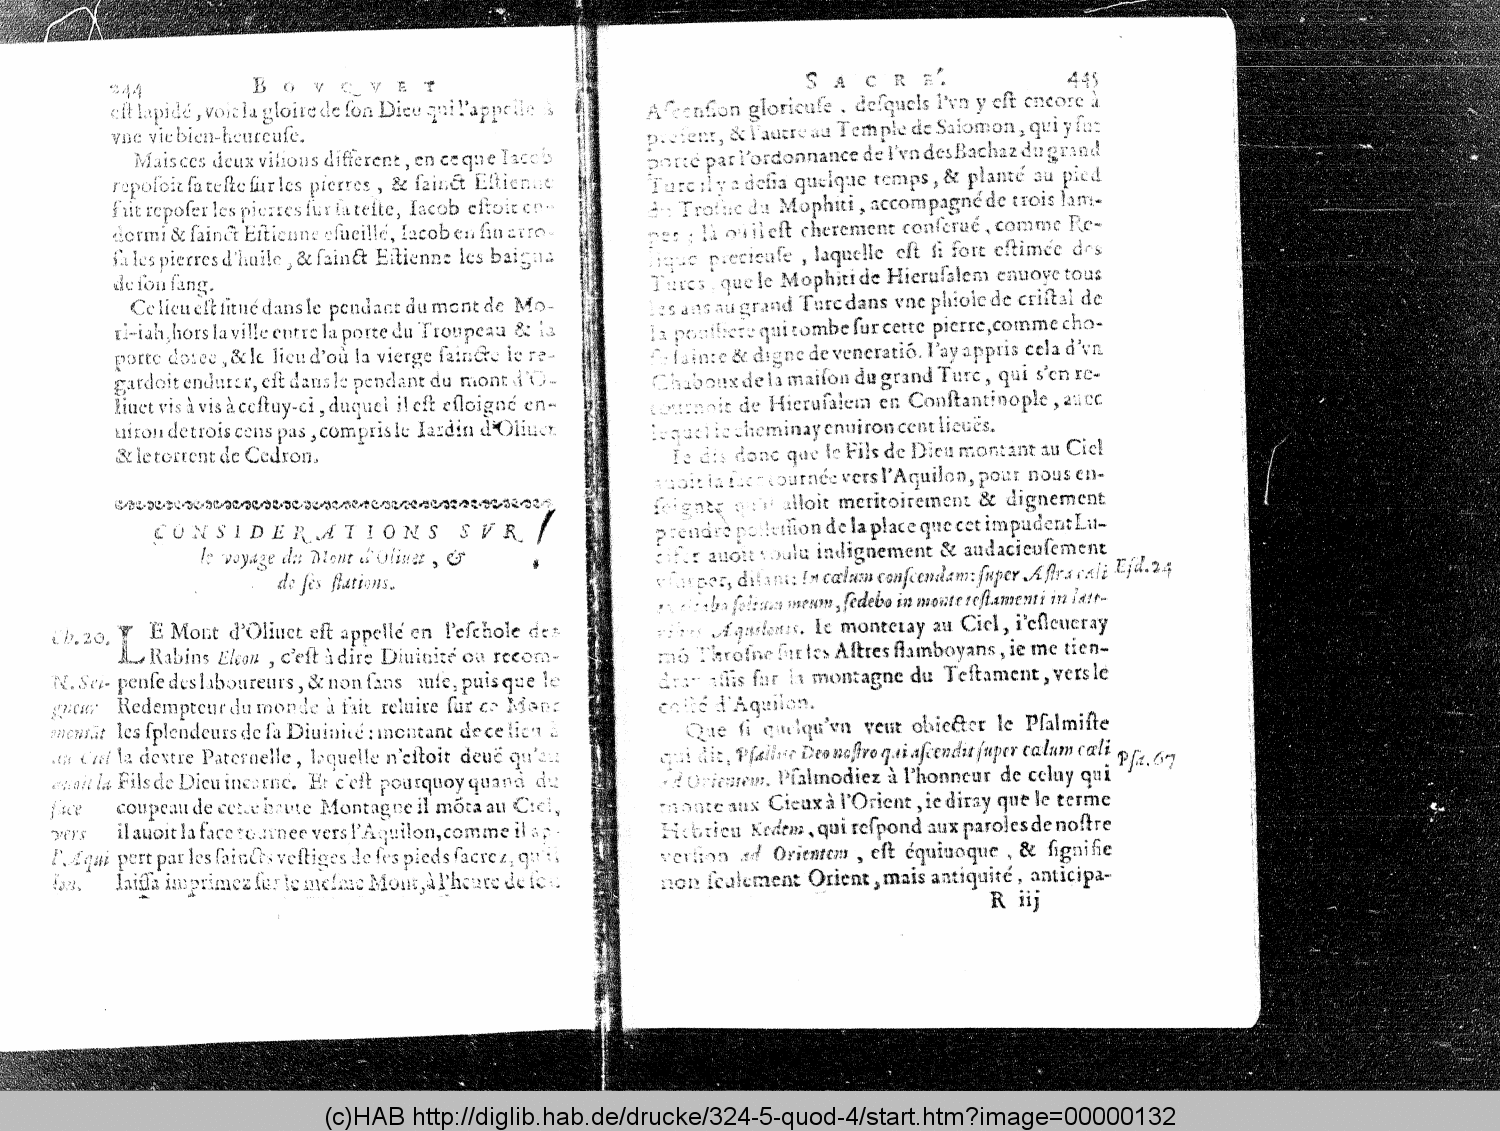 244 BOVQVET
est lapidé, voic la gloire de son Dieu qui l'appelle à
vne vie bien-heureuse.
Mais ces deux visions different, en ce que Iacob
reposoit sa teste sur les pierres, & sainct Estienne
fut reposer les pierres sur sa teste, Iacob estoit en-
dormi & sainct Estienne esueillé, Iacob en fin arro-
sa les pierres d'huile, & sainct Estienne les baigna
de son sang.
Ce lieu est situé dans le pendant du mont de Mo-
ri-iah, hors la ville entre la porte du Troupeau & la
porte doree, & le lieu d'où la vierge saincte le re-
gardoit endurer, est dans le pendant du mont d'O-
liuet vis à vis à cestuy-ci, duquel il est esloigné en-
uiron de trois cens pas, compris le Iardin d'Oliuet
& le torrent de Cedron.
CONSIDERATIONS SVR
le voyage du Mont d'Oliuet, &
de ses stations.
Ch. 20.
LE Mont d'Oliuet est appellé en l'eschole des
Rabins Eleon, c'est à dire Diuinité ou recom-
pense des laboureurs, & non sans puis que le
Redempteur du monde à fait reluire sur ce Mont
les splendeurs de sa Diuinité : montant de ce lieu à
la dextre Paternelle, laquelle n'estoit deuë qu'au
Fils de Dieu incarné. Et c'est pourquoy quand du
coupeau de cette haute Montagne il mõta au Ciel,
il auoit la face tournee vers l'Aquilon, comme il ap-
pert par les saincts vestiges de ses pieds sacrez, qu'il
laissa imprimez sur le mesme Mont, à l'heure de son
N. Sei-
gneur
montãt
au Ciel
auoit la
face
vers
l'Aqui
lon.
SACRE'. 445
Ascension glorieuse, desquels l'vn y est encore à
present, & l'autre au Temple de Salomon, qui y fut
porté par l'ordonnance de l'vn des Bachaz du grand
Turc il y a desia quelque temps, & planté au pied
du Trosne du Mophiti, accompagné de trois lam-
pes : là où il est cherement conserué, comme Re-
lique precieuse, laquelle est si fort estimée des
Turcs, que le Mophiti de Hierusalem enuoye tous
les ans au grand Turc dans vne phiole de cristal de
la poussiere qui tombe sur cette pierre, comme cho-
se sainte & digne de veneratiõ. I'ay appris cela d'vn
Chaboux de la maison du grand Turc, qui s'en re-
tournoit de Hierusalem en Constantinople, auec
lequel ie cheminay enuiron cent lieuës.
Ie dis donc que le Fils de Dieu montant au Ciel
auoit la face tournée vers l'Aquilon, pour nous en-
seigner qu'il alloit meritoirement & dignement
prendre possession de la place que cet impudent Lu-
cifer auoit voulu indignement & audacieusement
vsurper, disant: In cœlum conscendam: super Astra cœli
solium meum, sedebo in monte testamenti in late-
Aquilonis. Ie monteray au Ciel, i'esleueray
mõ Throsne sur les Astres flamboyans, ie me tien-
dray assis sur la montagne du Testament, vers le
costé d'Aquilon.
Esa. 24
Que si quelqu'vn veut obiecter le Psalmiste
qui dit, Psallite Deo nostro qui ascendit super cœlum cœli
ad Orientem. Psalmodiez à l'honneur de celuy qui
monte aux Cieux à l'Orient, ie diray que le terme
Hebrieu Kedem, qui respond aux paroles de nostre
version ad Orientem, est équiuoque, & signifie
non seulement Orient, mais antiquité, anticipa-
Psa. 67
R iij
(c)HAB http://diglib.hab.de/drucke/324-5-quod-4/start.htm?image=00000132